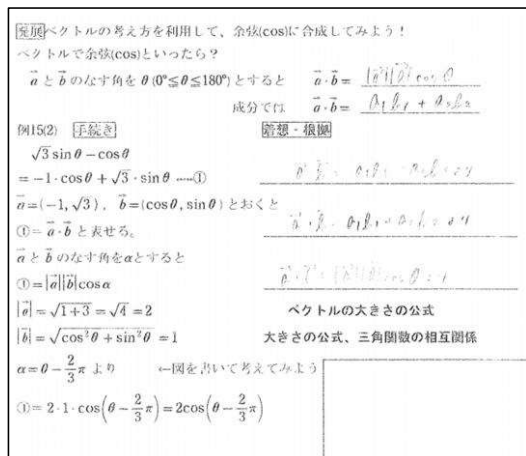 発展ベクトルの考え方を利用して、余弦(cos)に合成してみよう！
ベクトルで余弦(cos)といったら？
a⃗ と b⃗ のなす角を θ (0°≦θ≦180°) とすると a⃗・b⃗ = |a⃗||b⃗| cos θ
成分では a⃗・b⃗ = a₁b₁ + a₂b₂
例15(2) 手続き 着想・根拠
√3 sin θ − cos θ
= −1・cos θ + √3・sin θ ……①
a⃗ = (−1, √3), b⃗ = (cos θ, sin θ) とおくと
① = a⃗・b⃗ と表せる。
a⃗ と b⃗ のなす角を α とすると
① = |a⃗||b⃗| cos α
|a⃗| = √(1+3) = √4 = 2 ベクトルの大きさの公式
|b⃗| = √(cos² θ + sin² θ) = 1 大きさの公式、三角関数の相互関係
α = θ − 2/3 π より ←図を書いて考えてみよう
① = 2・1・cos(θ − 2/3 π) = 2cos(θ − 2/3 π)